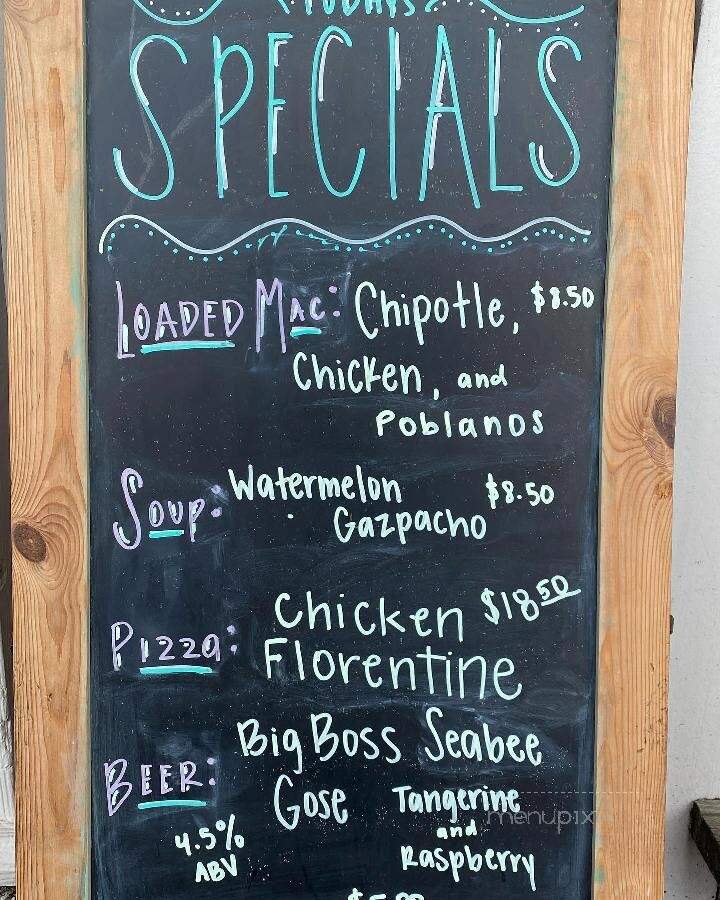 SPECIALS
LOADED MAC: Chipotle, $8.50
Chicken, and
Poblanos
SOUP: Watermelon $8.50
Gazpacho
PIZZA: Chicken $18.50
Florentine
BEER: Big Boss Seabee
Gose Tangerine
and
Raspberry
4.5%
ABV
menupix